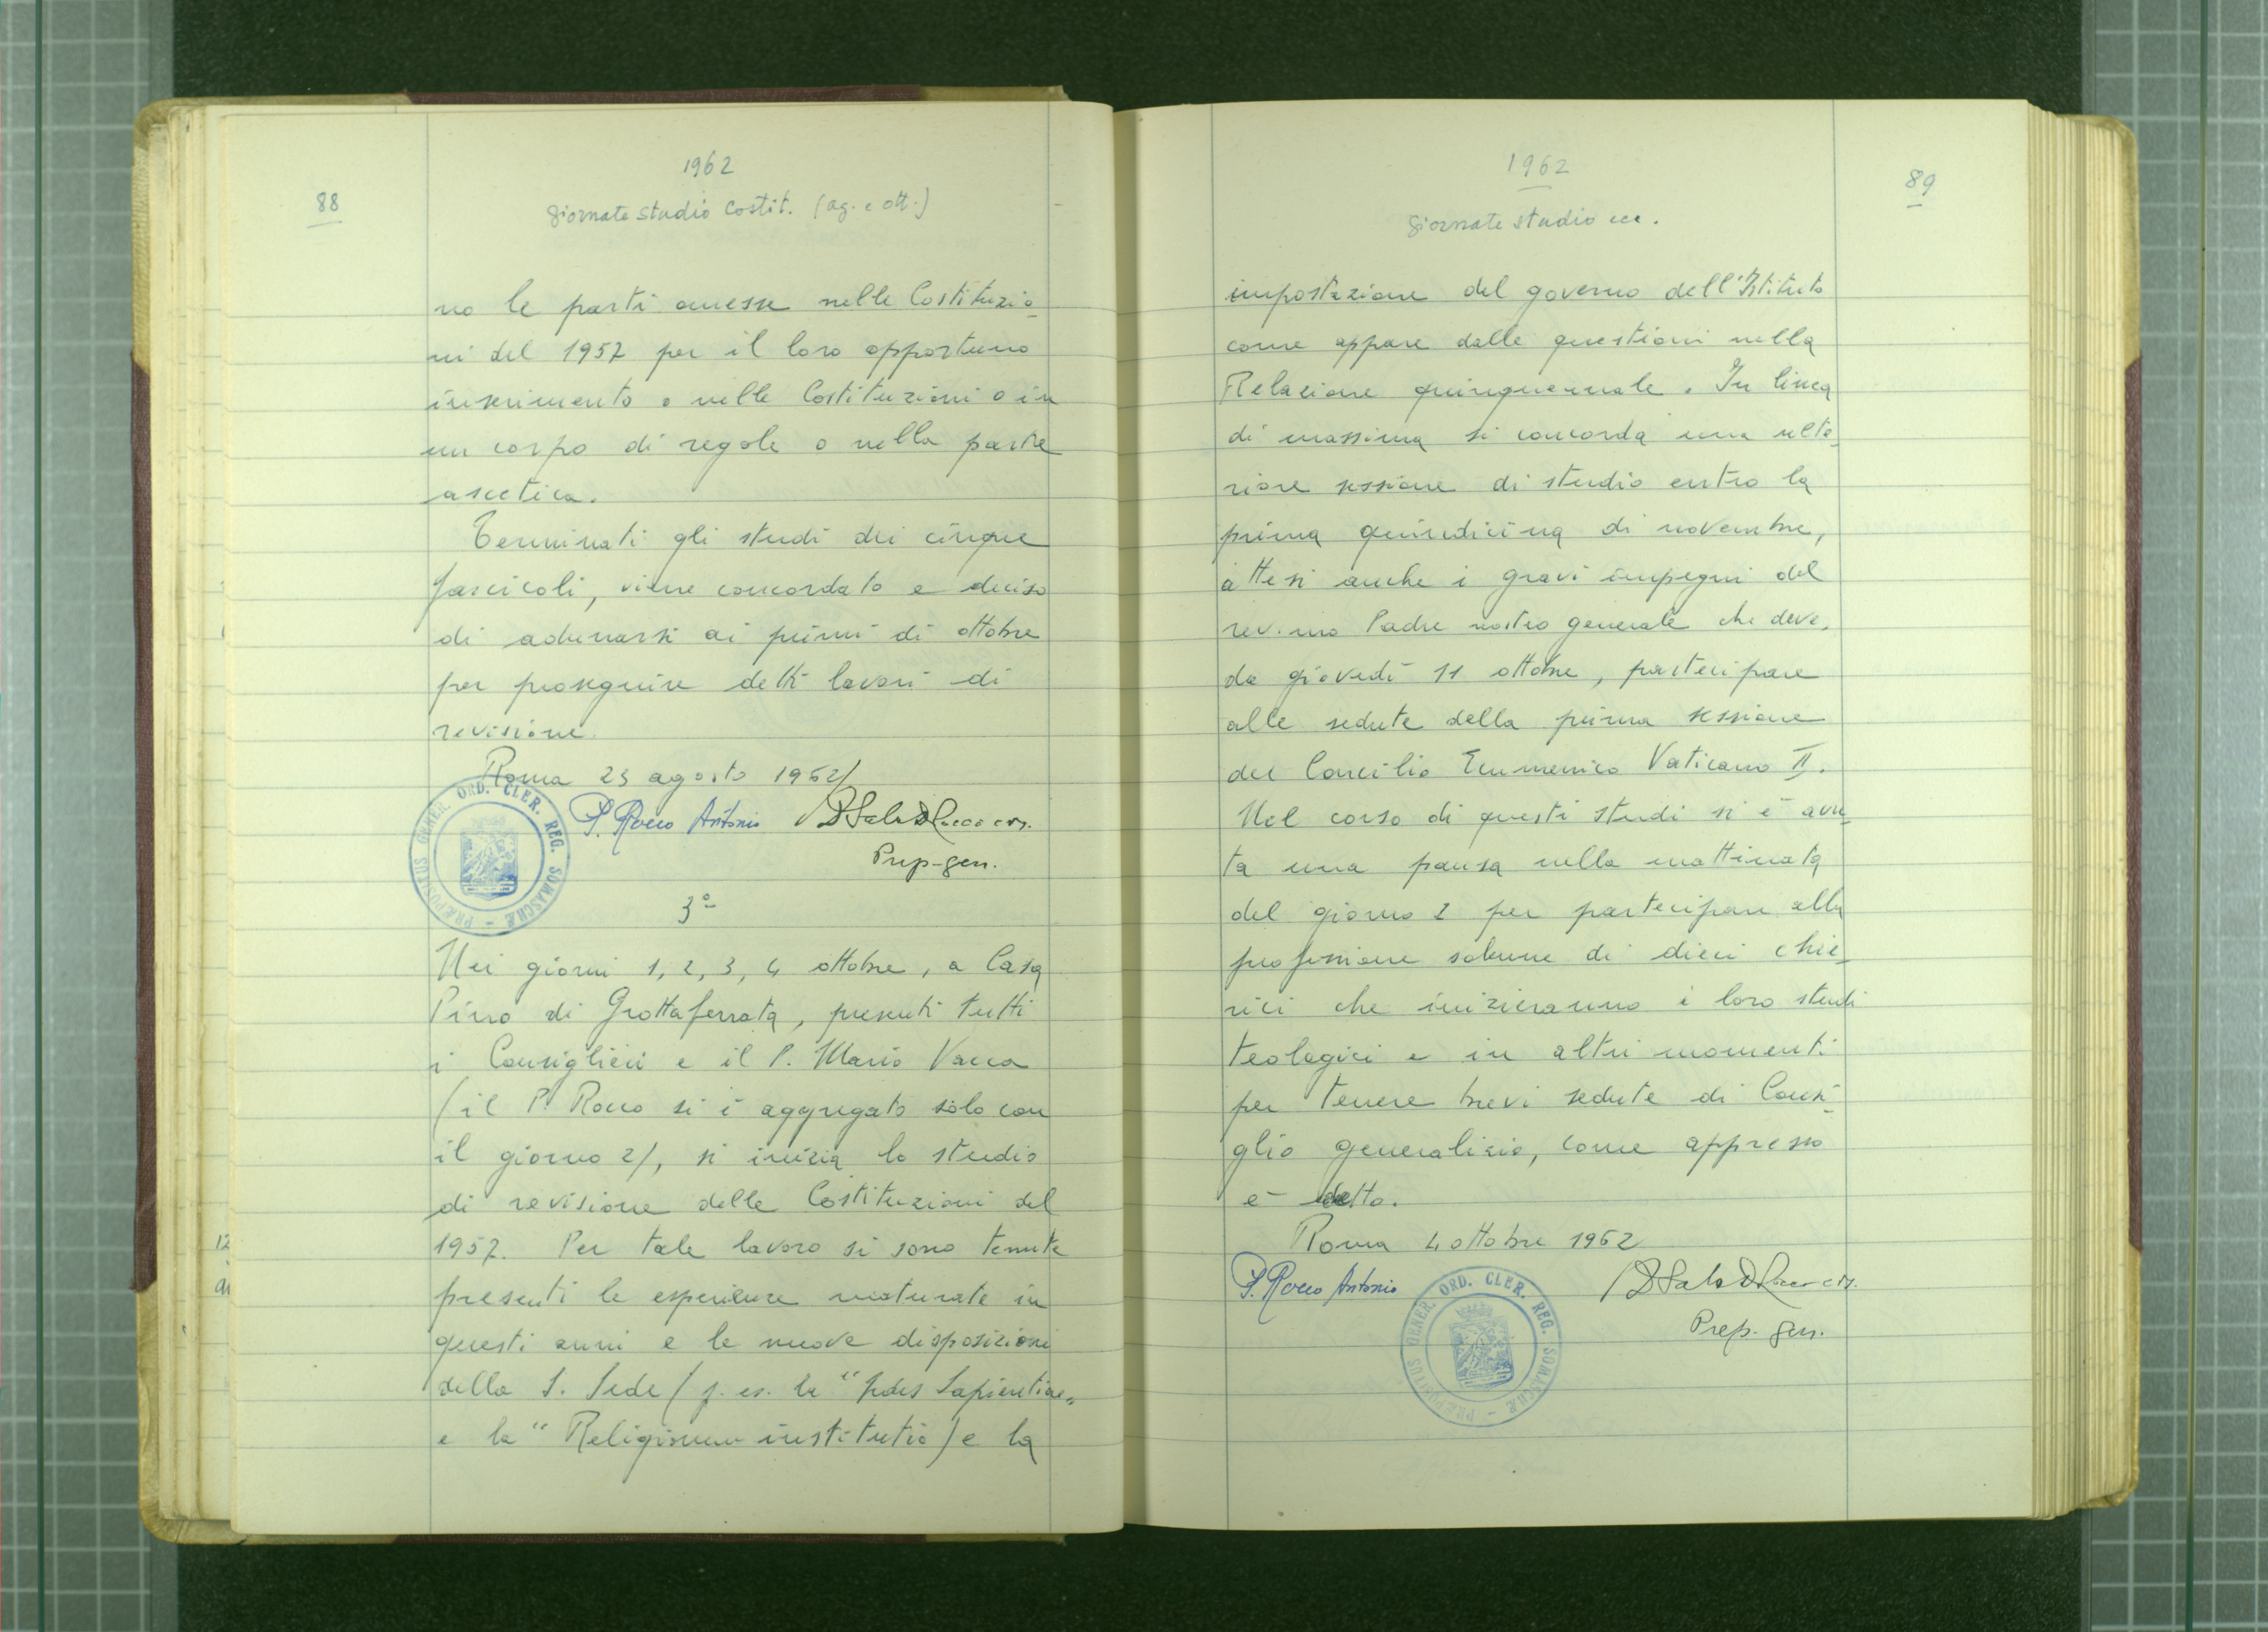 1962
88
giornate studio Costit. (ag. e ott.)
no le parti omesse nelle Costituzio-
ni del 1957 per il loro opportuno
inserimento o nelle Costituzioni o in
un corpo di regole o nella parte
ascetica.
Terminati gli studi dei cinque
fascicoli, viene concordato e deciso
di adunarsi ai primi di ottobre
per proseguire detti lavori di
revisione.
Roma 23 agosto 1962/
P. Rocco Antonio
Prep-gen.
PRÆPOSITUS GENER. ORD. CLER. REG. SOMASCHÆ
3º
Nei giorni 1, 2, 3, 4 ottobre, a Casa
Pino di Grottaferrata, presenti tutti
i Consiglieri e il P. Mario Vacca
(il P. Rocco si è aggregato solo con
il giorno 2/, si inizia lo studio
di revisione delle Costituzioni del
1957. Per tale lavoro si sono tenute
presenti le esperienze maturate in
questi anni e le nuove disposizioni
della S. Sede (p. es. la "Sedes Sapientiae„
e la "Religiosum institutio) e la
1962
89
giornate studio ecc.
impostazione del governo dell'Istituto
come appare dalle questioni nella
Relazione quinquennale. In linea
di massima si concorda una ulte-
riore sessione di studio entro la
prima quindicina di novembre,
attesi anche i gravi impegni del
rev.mo Padre nostro generale che deve,
da giovedì 11 ottobre, partecipare
alle sedute della prima sessione
del Concilio Ecumenico Vaticano II.
Nel corso di questi studi si è avu-
ta una pausa nella mattinata
del giorno 2 per partecipare alla
professione solenne di dieci chie-
rici che inizieranno i loro studi
teologici e in altri momenti
per tenere brevi sedute di Consi-
glio generalizio, come appresso
è detto.
Roma 4 ottobre 1962
P. Rocco Antonio
Prep. gen.
PRÆPOSITUS GENER. ORD. CLER. REG. SOMASCHÆ
12